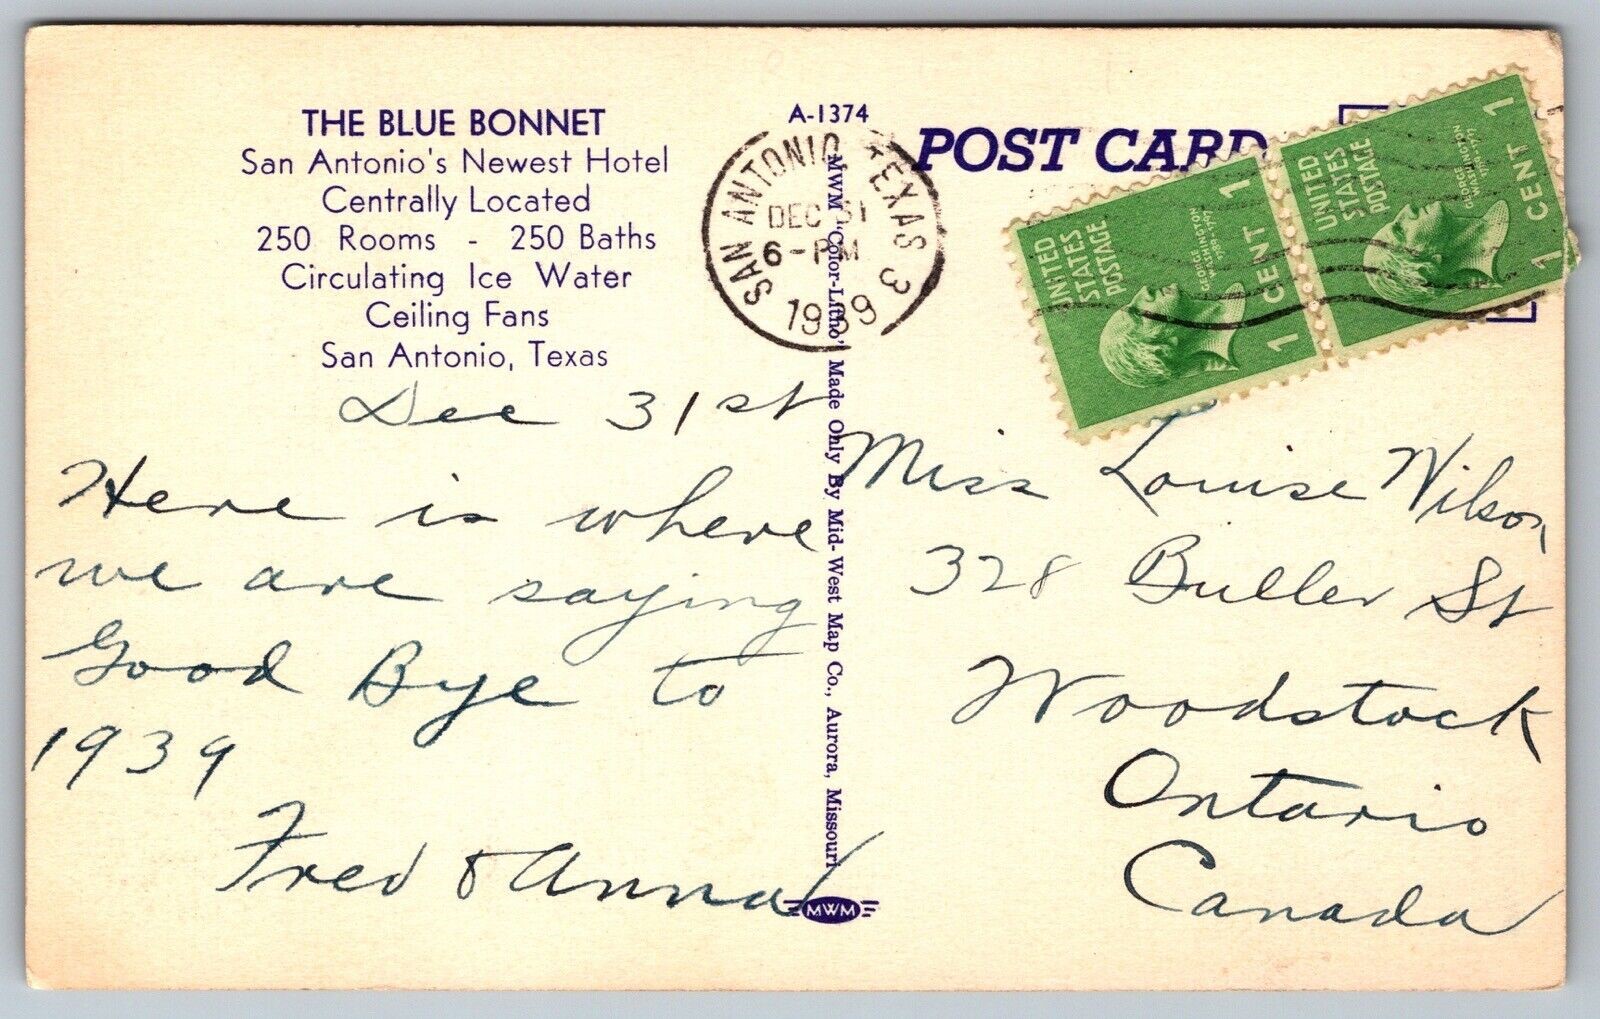 THE BLUE BONNET
San Antonio's Newest Hotel
Centrally Located
250 Rooms - 250 Baths
Circulating Ice Water
Ceiling Fans
San Antonio, Texas
Dec 31st
Here is where
we are saying
Good Bye to
1939
Fred & Anna
A-1374
MWM "Color-Litho" Made Only By Mid-West Map Co., Aurora, Missouri
MWM
SAN ANTONIO, TEXAS 3
DEC 31
6-PM
1939
POST CARD
UNITED
STATES
POSTAGE
GEORGE WASHINGTON
1789-1797
1 CENT 1
UNITED
STATES
POSTAGE
GEORGE WASHINGTON
1789-1797
1 CENT 1
Miss Louise Wilson
328 Buller St
Woodstock
Ontario
Canada